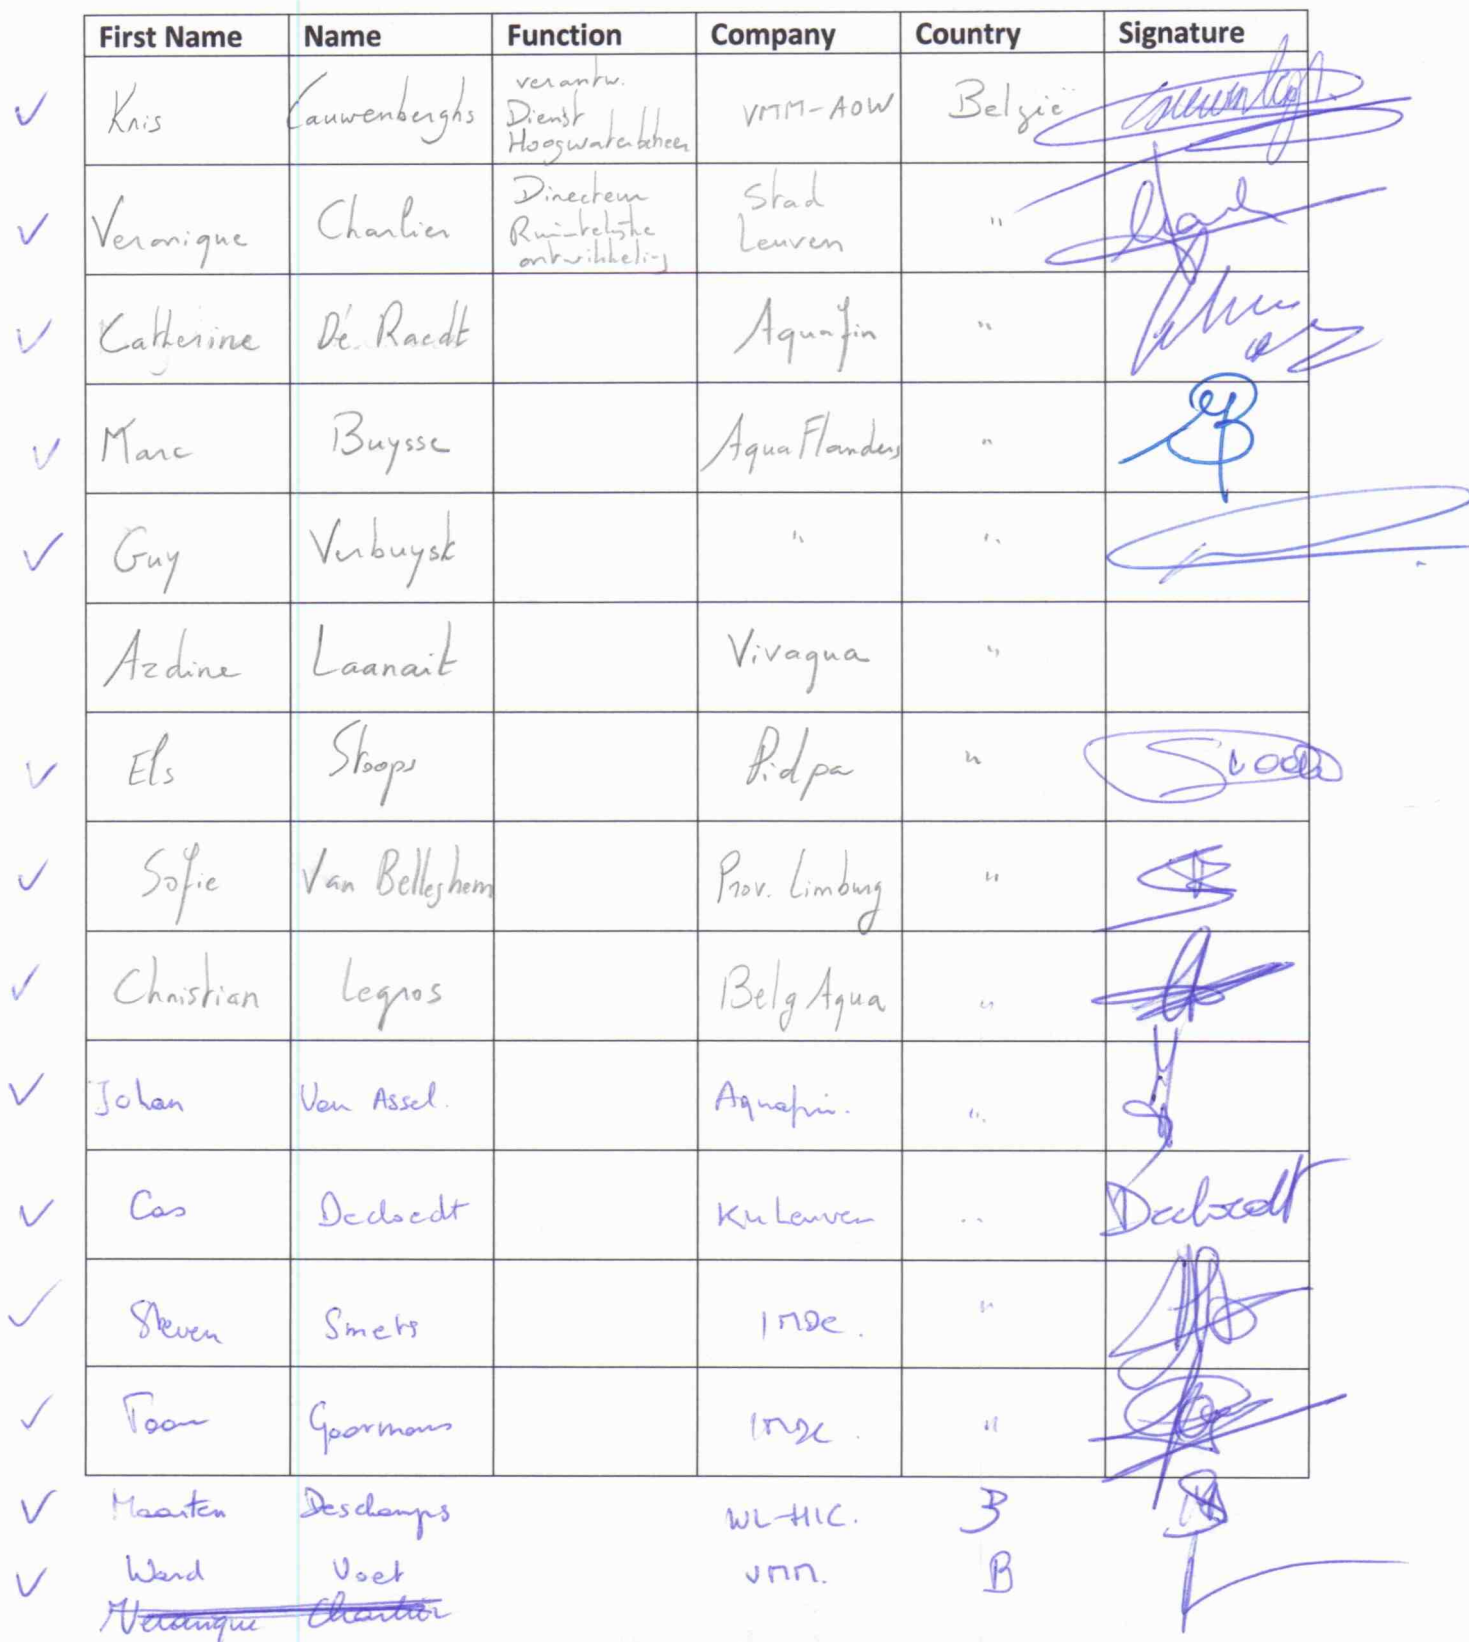 First Name Name Function Company Country Signature
✓ Kris Cauwenberghs verantw. Dienst Hoogwaterbeheer VMM-AOW België
✓ Veronique Charlier Directeur Ruimtelijke ontwikkeling Stad Leuven "
✓ Catherine De Raedt Aquafin "
✓ Marc Buysse AquaFlanders "
✓ Guy " "
Azdine Laanait Vivaqua "
✓ Els Stoops Pidpa "
✓ Sofie Van Belleghem Prov. Limburg "
✓ Christian Legros BelgAqua "
✓ Johan Van Assel. Aquafin. "
✓ Cas Decloedt KU Leuven " Decloedt
✓ Steven Smets IMDC. "
✓ Toon Goormans IMDC. "
✓ Maarten Deschamps WL-HIC. B
✓ Ward Voet VMM. B
Veronique Charlier